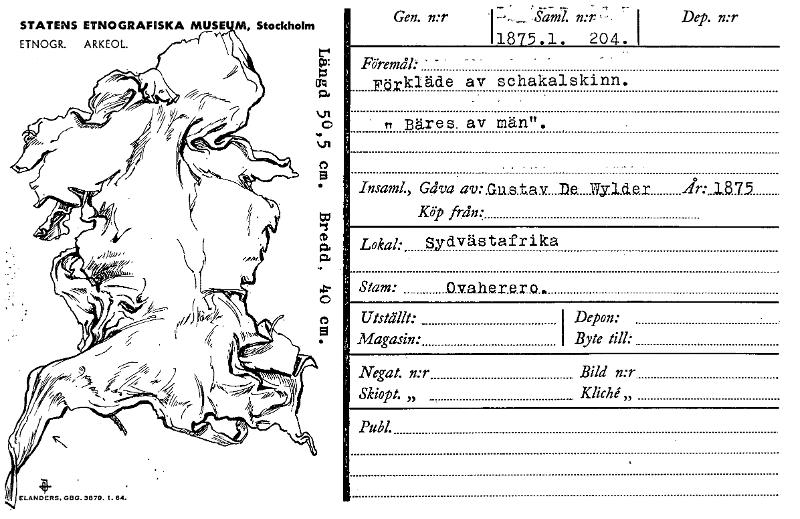 STATENS ETNOGRAFISKA MUSEUM, Stockholm
ETNOGR. ARKEOL.
Längd 50,5 cm. Bredd, 40 cm.
ELANDERS, GBG. 3879. 1. 64.
Gen. n:r Saml. n:r Dep. n:r
1875.1. 204.
Föremål:
Förkläde av schakalskinn.
" Bäres av män".
Insaml., Gåva av: Gustav De Wylder År: 1875
Köp från:
Lokal: Sydvästafrika
Stam: Ovaherero.
Utställt: Depon:
Magasin: Byte till:
Negat. n:r Bild n:r
Skiopt. „ Kliché „
Publ.